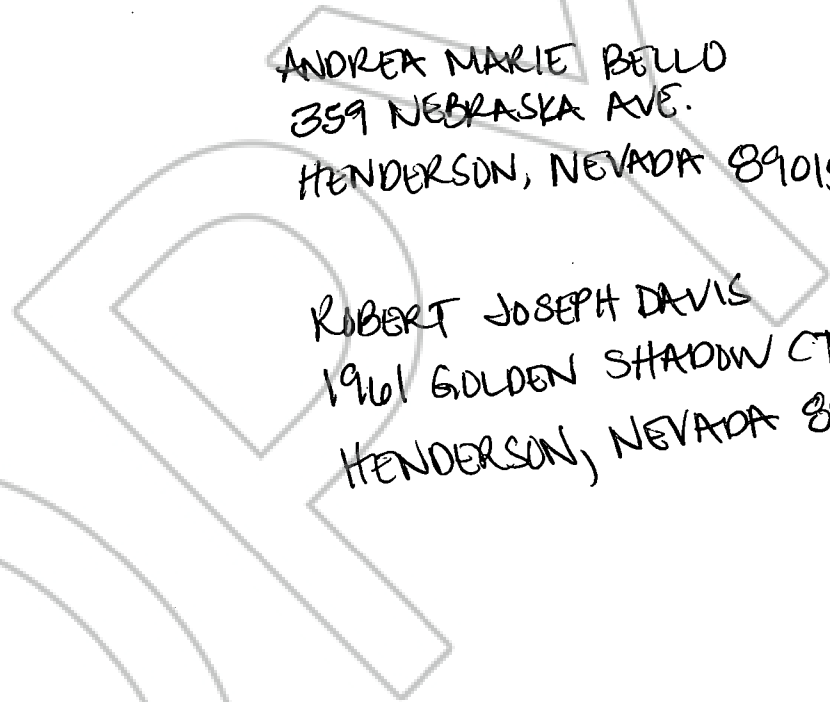 ANDREA MARIE BELLO
359 NEBRASKA AVE.
HENDERSON, NEVADA 89015
ROBERT JOSEPH DAVIS
1961 GOLDEN SHADOW CT
HENDERSON, NEVADA